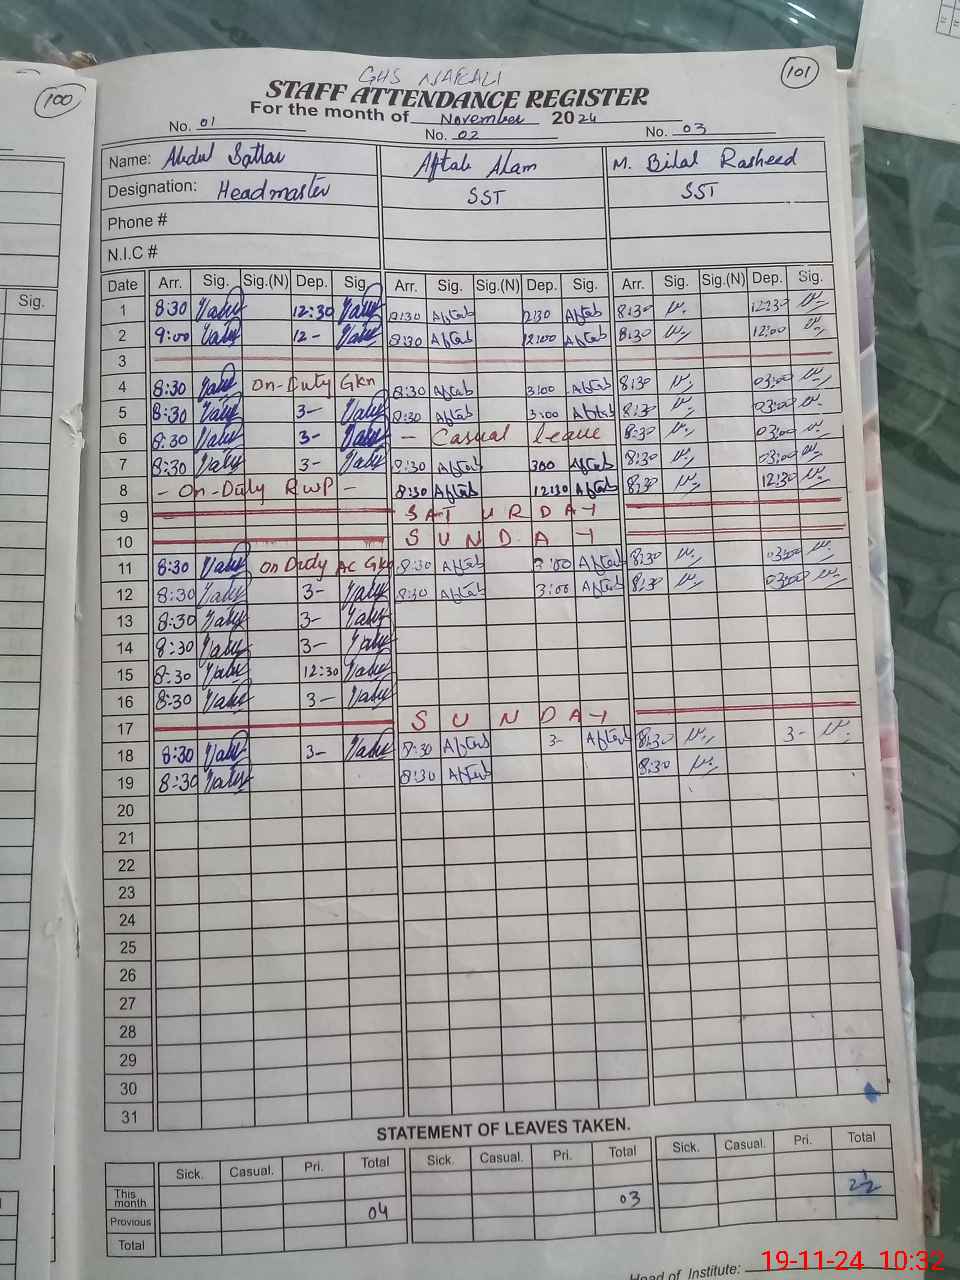 100
Sig.
101
GHS NARALI
STAFF ATTENDANCE REGISTER
For the month of November 2024
No. 01 No. 02 No. 03
Name: Abdul Sattar Aftab Alam M. Bilal Rasheed
Designation: Headmaster SST SST
Phone #
N.I.C #
Date Arr. Sig. Sig.(N) Dep. Sig. Arr. Sig. Sig.(N) Dep. Sig. Arr. Sig. Sig.(N) Dep. Sig.
1 8:30 12:30 8:30 Aftab 12:30 Aftab 8:30 12:30
2 9:00 12- 8:30 Aftab 12:00 Aftab 8:30 12:00
3
4 8:30 On-Duty Gkn 8:30 Aftab 3:00 Aftab 8:30 03:00
5 8:30 3- 8:30 Aftab 3:00 Aftab 8:30 03:00
6 8:30 3- - Casual leave 8:30 03:00
7 8:30 3- 8:30 Aftab 300 Aftab 8:30 03:00
8 - On-Duty RWP - 8:30 Aftab 12:30 Aftab 8:30 12:30
9 SATURDAY
10 SUNDAY
11 8:30 on Duty AC Gkn 8:30 Aftab 3:00 Aftab 8:30 03:00
12 8:30 3- 8:30 Aftab 3:00 Aftab 8:30 03:00
13 8:30 3-
14 8:30 3-
15 8:30 12:30
16 8:30 3-
17 SUNDAY
18 8:30 3- 8:30 Aftab 3- Aftab 8:30 3-
19 8:30 8:30 Aftab 8:30
20
21
22
23
24
25
26
27
28
29
30
31
STATEMENT OF LEAVES TAKEN.
Sick. Casual. Pri. Total Sick. Casual. Pri. Total Sick. Casual. Pri. Total
This month
Previous 04 03 2½
Total
Head of Institute:
19-11-24 10:32